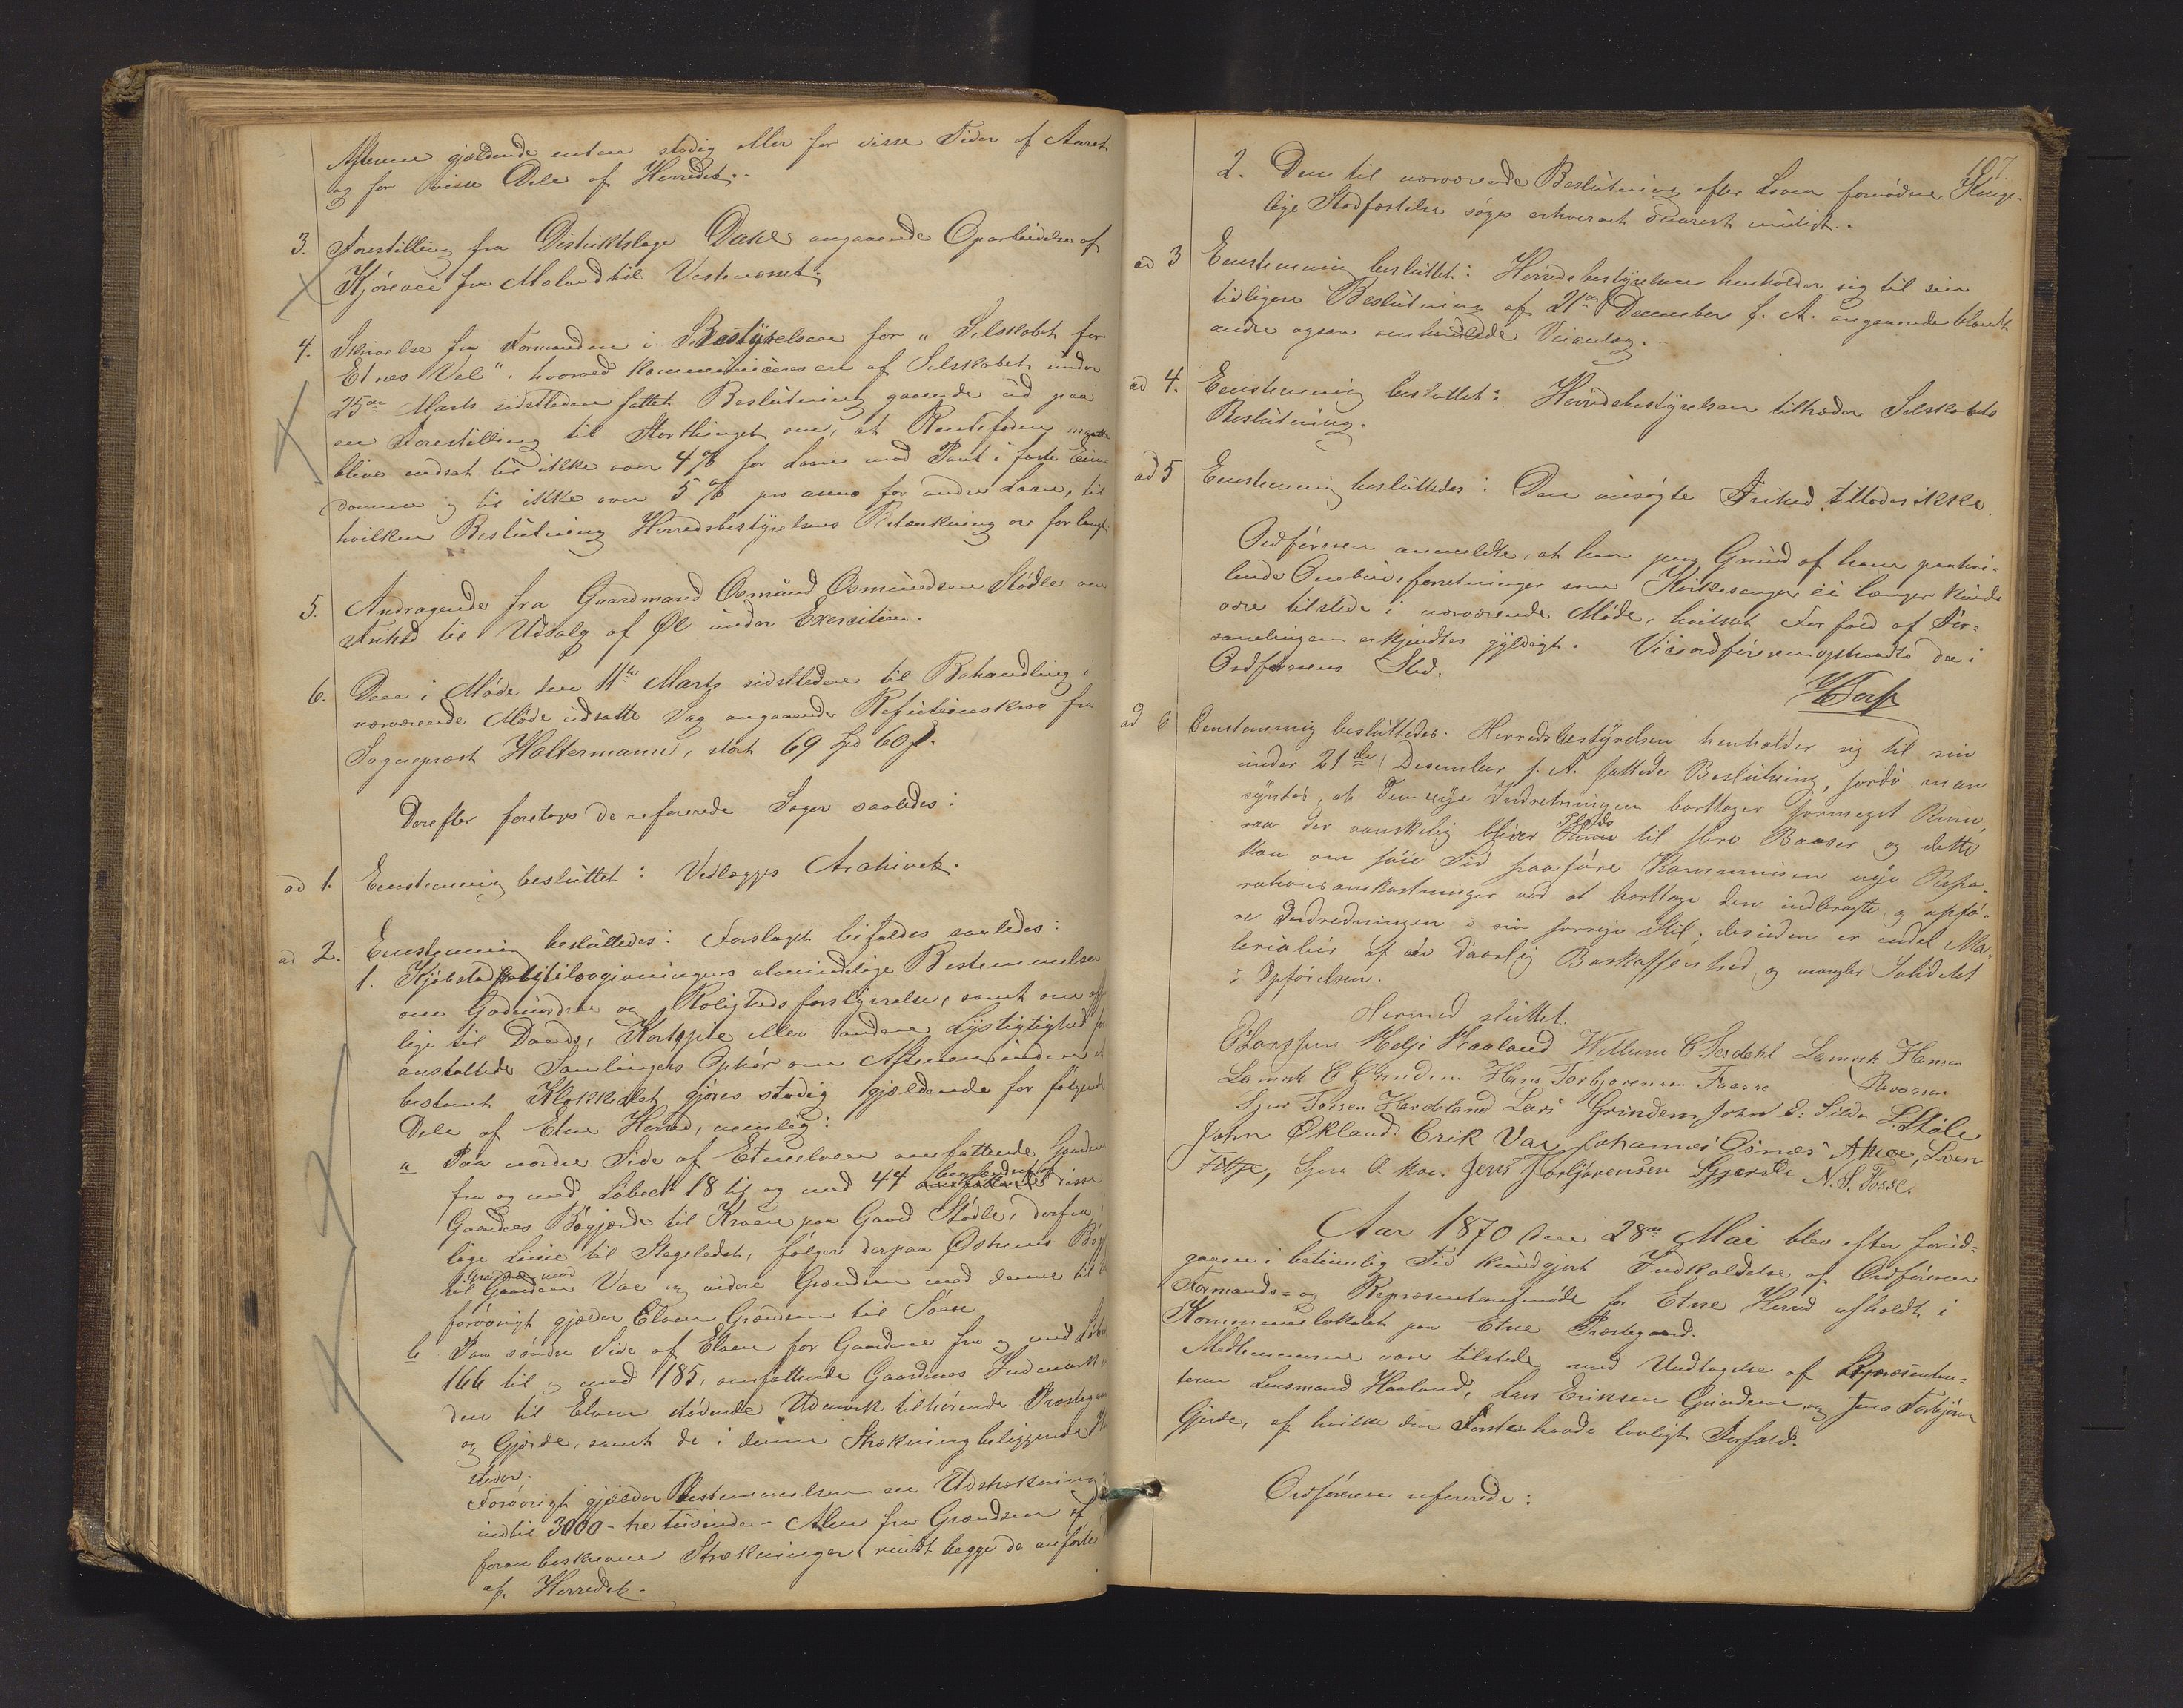 Aftenen gjældende enten stadig eller for visse Tider af Aaret
og for visse Dele af Herredet.
3. Forestilling fra Distriktslæge Dahl angaaende Oparbeidelse af
Kjørevei fra Mæland til Vestenæsset.
4. Skrivelse fra Formanden i Bestyrelsen for "Selskabet for
Etnes Vel", hvorved kommuniceres en af Selskabet under
25de Marts sidstleden fattet Beslutning gaaende ud paa
en Forestilling til Storthinget om, at Rentefoden maatte
blive nedsat til ikke over 4% for Laan mod Pant i faste Ein-
domme og til ikke over 5% pro anno for andre Laan, til
hvilken Beslutning Herredsbestyrelsens Betænkning er forlangt
5. Andragende fra Gaardmand Osmund Osmundsen Stødle om
Frihed til Udsalg af Øl under Exercitien.
6. Den i Møde den 11te Marts sidstleden til Behandling i
nærværende Møde udsatte Sag angaaende Refusionskrav fra
Sognepræst Haltermann, stort 69 Spd 60 s.
Derefter foretoges de refererede Sager saaledes:
ad 1. Eenstemmig besluttet: Vedlægges Archivet.
ad 2. Eenstemmig besluttedes: Forslaget bifaldes saaledes:
1. Kjøbstadpolitilovgivningens almindelige Bestemmelser
om Gadeuorden og Roligheds forstyrrelse, samt om offent
lige til Dands, Kortspil eller anden Lystighed
anstaltede Samlingers Ophør om Aftenen inden et
bestemt Klokkeslet gjøres stadig gjældende for følgende
Dele af Etne Herred, nemlig:
a Paa nordre Side af Etneelven omfattende Gaardene
fra og med Løbeno 18 til og med 44 begrændset af disse
Gaardes Bøgjærde til Kroen paa Gaard Stødle, derfra i
lige Linie til Stegeledet, følger derpaa Østrems Bøgj
til Grændsen mod Vae og videre Grændsen mod denne til
forøvrigt gjælder Elven Grændsen til Søen
b Paa søndre Side af Elven for Gaardene fra og med Løbeno
166 til og med 185, omfattende Gaardenes Indmark
den til Elven stødende Udmark tilhørende Præstegaard
og Gjerde, samt de i denne Strækning beliggende
steder.
Forøvrigt gjælder Bestemmelsen en Udstrækning
indtil 3000 - tre tusinde - Alen fra Grændsen af
foran beskrevne Strækninger rundt begge de anførte
af Herredet.
107.
2. Den til nærværende Beslutning efter Loven fornødne Konge-
lige Stadfæstelse søges erhvervet snarest muligt.
ad 3 Eenstemmig besluttet: Herredsbestyrelsen henholder sig til sin
tidligere Beslutning af 21de December f. A. angaaende blandt
andre ogsaa omhandlede Veianlæg.
ad 4. Eenstemmig besluttet: Herredsbestyrelsen tiltræder Selskabets
Beslutning.
ad 5 Eenstemmig besluttedes: Den ansøgte Frihed tillades ikke.
Ordføreren anmeldte, at han paa Grund af ham paahvi-
lende Ombudsforretninger som Kirkesanger ei længer kunde
være tilstede i nærværende Møde, hvilket Forfald af For-
samlingen erkjendtes gyldigt. Viceordføreren opraabte da i
Ordførerens Sted.
Torp
ad 6 Eenstemmig besluttedes: Herredsbestyrelsen henholder sig til sin
under 21de Desember f. A. fattede Beslutning, fordi man
synes, at den nye Indretningen borttager formeget Rum,
saa der vanskelig bliver Plads til flere Baaser og dette
kan om føie Tid paaføre Kommunen nye Repa-
rationsomkostninger ved at borttage den indbragte og opfø-
re Indredningen i sin forrige Stil; desuden er endel Ma-
terialier af en daarlig Beskaffenhed og mangler Soliditet
i Opførelsen.
Hermed sluttet.
O Larssen Helje Haaland Willum C Serdahl Lamerk Hansen
Lamerk E Grinden Hans Torbjorensen Fraase
Sjur Torsen Hardeland Lars Grindem John E: Silde L: Støle
John Økland. Erik Vae Johannes Osnes A Moe, Sven
Fitje, Sjur O. Moe. Jens Torbjørensen Gjærde N. S. Fosse.
Aar 1870 den 28de Mai blev efter forud-
gaaen i betimelig Tid kundgjort Indkaldelse af Ordføreren
Formands- og Repræsentantmøde for Etne Herred afholdt i
Kommunelokalet paa Etne Præstegaard.
Medlemmerne vare tilstede med Undtagelse af Repræsentan-
terne Lensmand Haaland, Lars Eriksen Grindem og Jens Torbjørns
Gjerde, af hvilke den Første havde lovligt Forfald.
Ordføreren refererede: